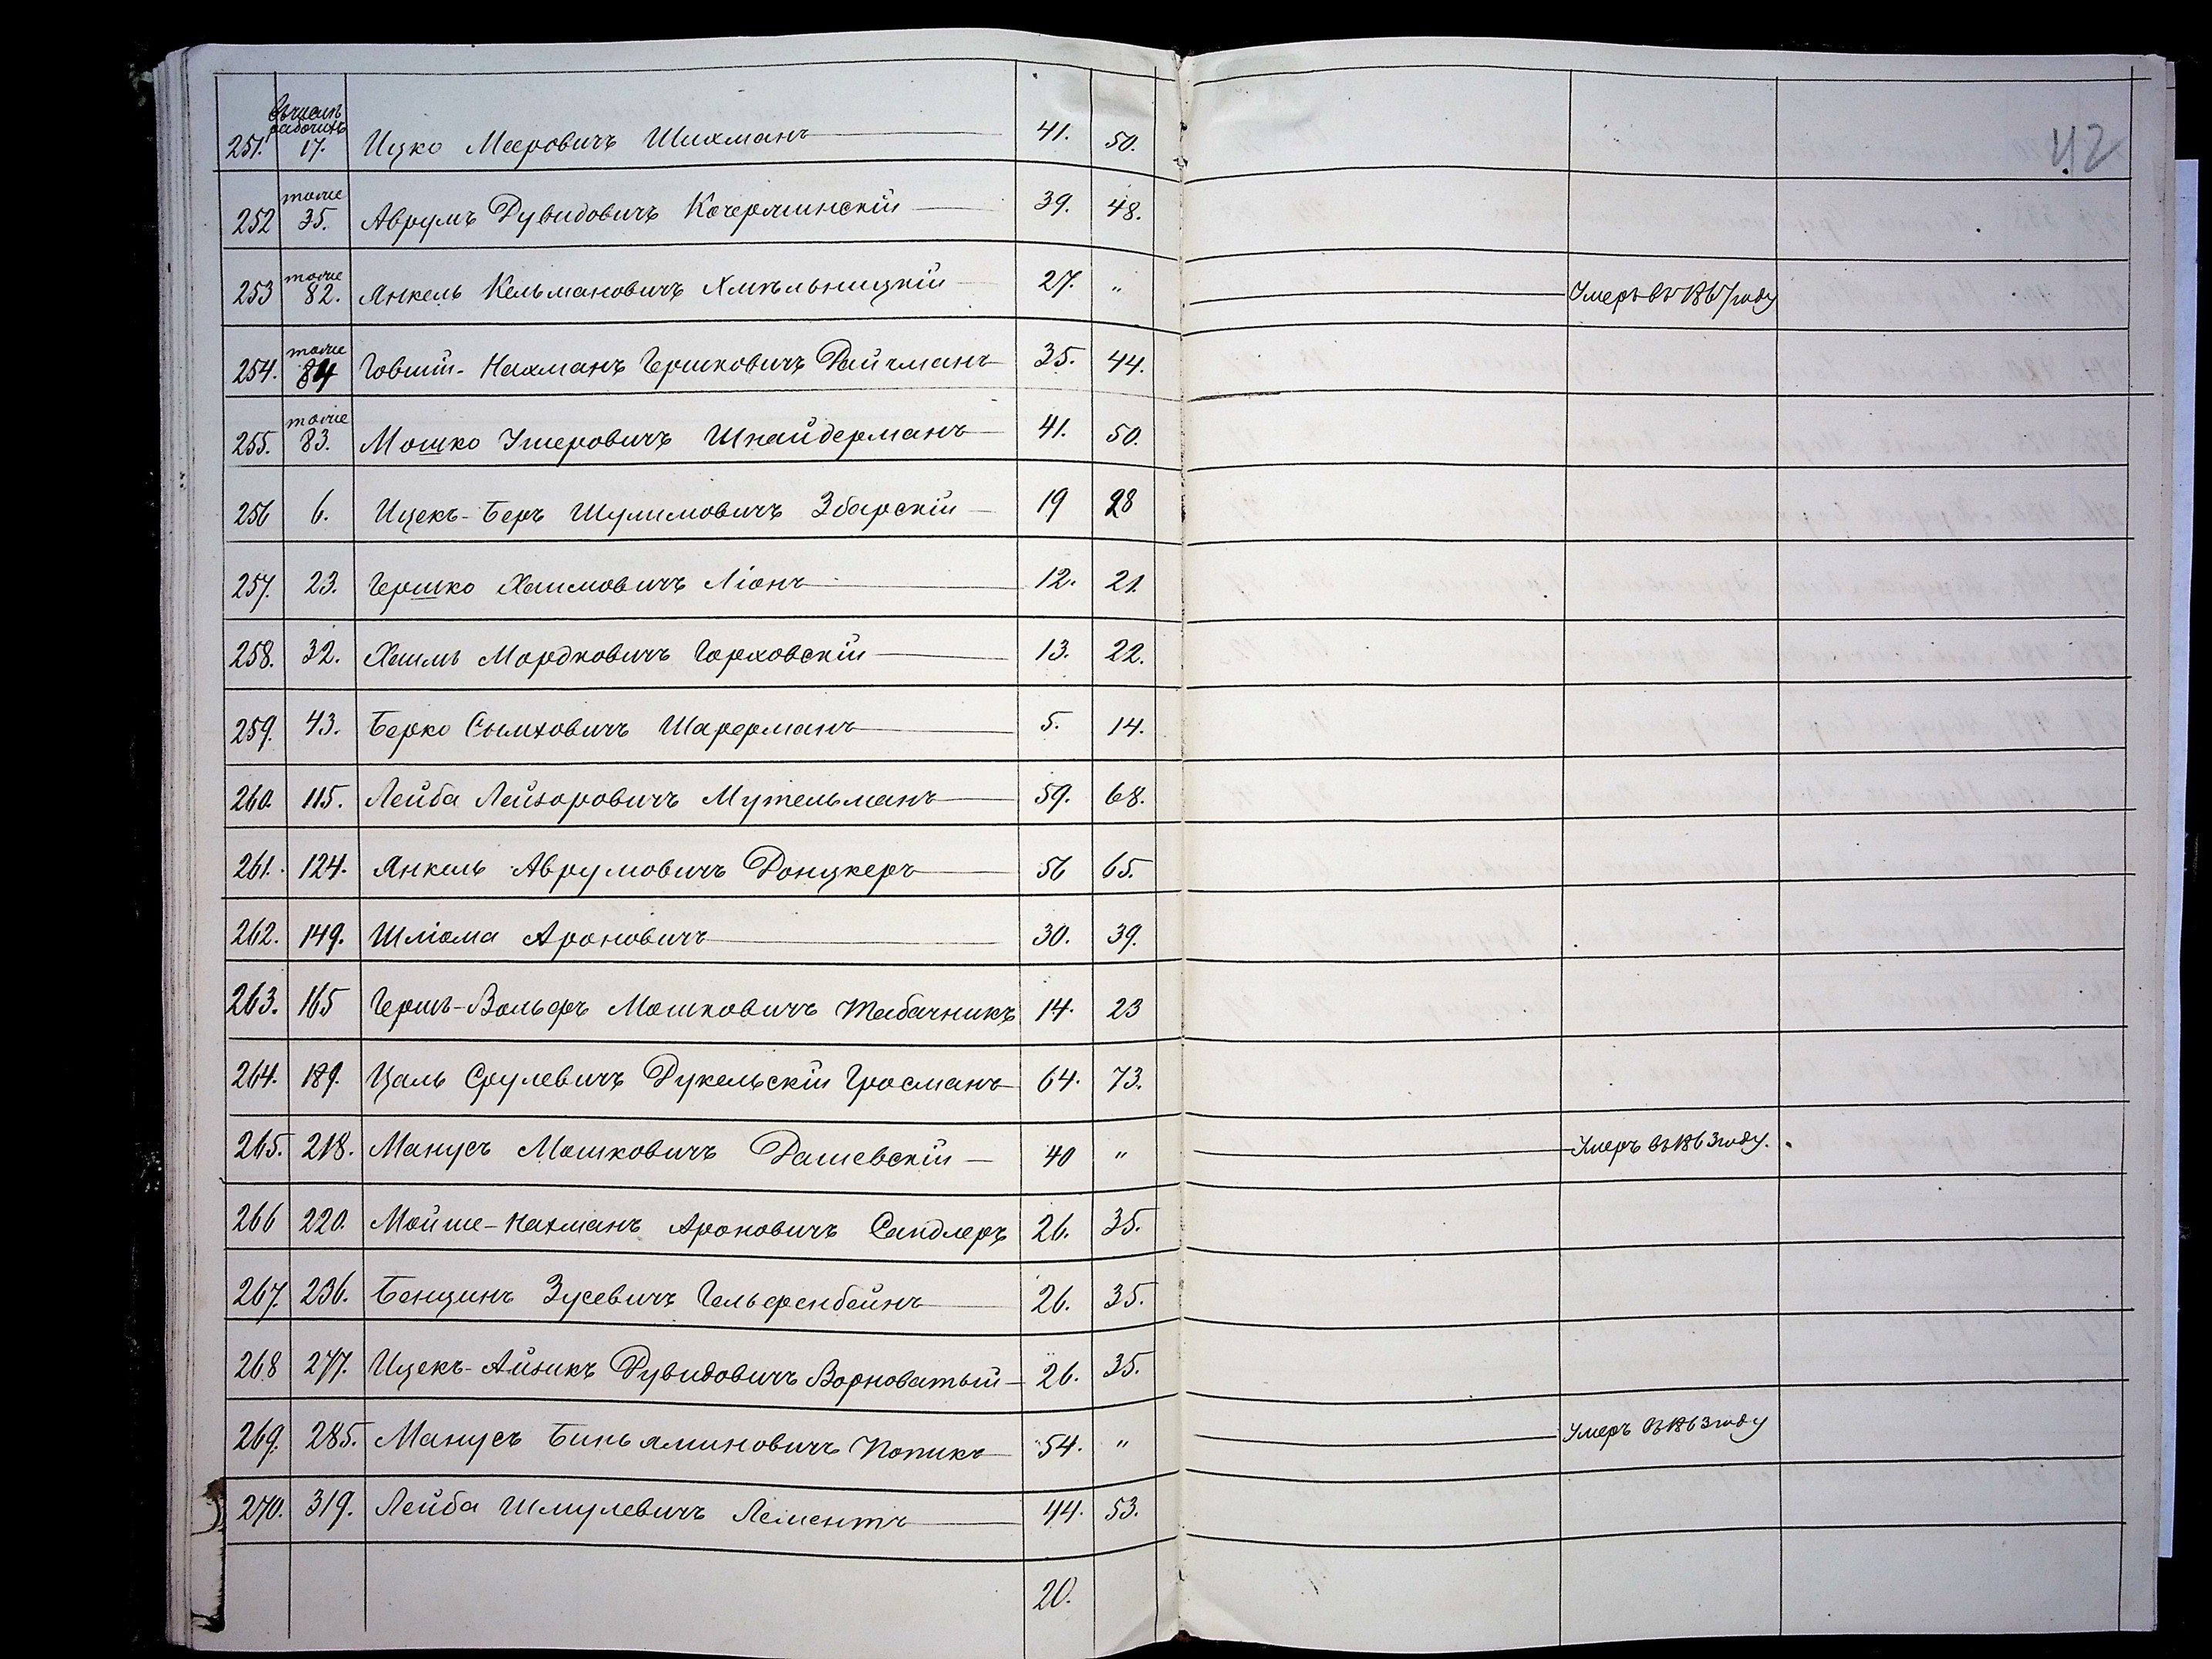 42
въ числѣ рабочихъ
251. 17. Ицко Мееровичъ Шихманъ 41. 50.
тоже
252 35. Аврумъ Дувидовичъ Кочержинскій 39. 48.
тоже
253 82. Янкель Кельмановичъ Хмѣльницкій 27. „ Умеръ въ 1867 году
тоже
254. 84 Говшій-Нахманъ Гершковичъ Райчманъ 35. 44.
тоже
255. 83. Мошко Ушеровичъ Шнайдерманъ 41. 50.
256 6. Ицекъ-Беръ Шулимовичъ Збарскій 19 28
257. 23. Гершко Хаимовичъ Ліонъ 12. 21.
258. 32. Хаимъ Мордковичъ Гороховскій 13. 22.
259. 43. Берко Сымховичъ Шарерманъ 5. 14.
260. 115. Лейба Лейзоровичъ Мутельманъ 59. 68.
261. 124. Янкель Аврумовичъ Донцкеръ 56 65.
262. 149. Шліома Ароновичъ 30. 39.
263. 165 Гершъ-Вольфъ Мошковичъ Табачникъ 14. 23
264. 189. Цаль Срулевичъ Дукельскій Гросманъ 64. 73.
265. 218. Манусъ Мошковичъ Дашевскій 40 „ Умеръ въ 1863 году.
266 220. Мойше-Нахманъ Ароновичъ Сандлеръ 26. 35.
267. 236. Бенцинъ Зусевичъ Гельфенбейнъ 26. 35.
268 277. Ицекъ-Айзикъ Дувидовичъ Ворноватый 26. 35.
269. 285. Манусъ Биньяминовичъ Попикъ 54. „ Умеръ въ 1863 году
270. 319. Лейба Шмулевичъ Лементъ 44. 53.
20.